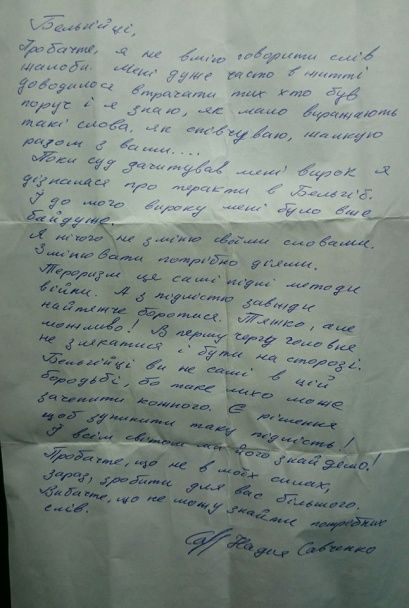 Бельгійці,
Пробачте, я не вмію говорити слів
жалоби. Мені дуже часто в житті
доводилося втрачати тих хто був
поруч і я знаю, як мало виражають
такі слова, як співчуваю, шалкую
разом з вами....
Поки суд зачитував мені вирок я
дізналася про теракти в Бельгії.
І до мого вироку мені було вже
байдуже.
Я нічого не зміню своїми словами.
Змінювати потрібно діями.
Тероризм це самі підлі методи
війни. А з підлістю завжди
найтяжче боротися. Тяжко, але
можливо! В першу чергу головне
не злякатися і бути на сторожі.
Бельгійці ви не самі в цій
боротьбі, бо таке лихо може
зачепити кожного. Є рішення
щоб зупинити таку підлість!
І всім світом ми його знайдемо!
Пробачте, що не в моїх силах,
зараз, зробити для вас більшого.
Вибачте, що не можу знайти потрібних
слів.
Надія Савченко